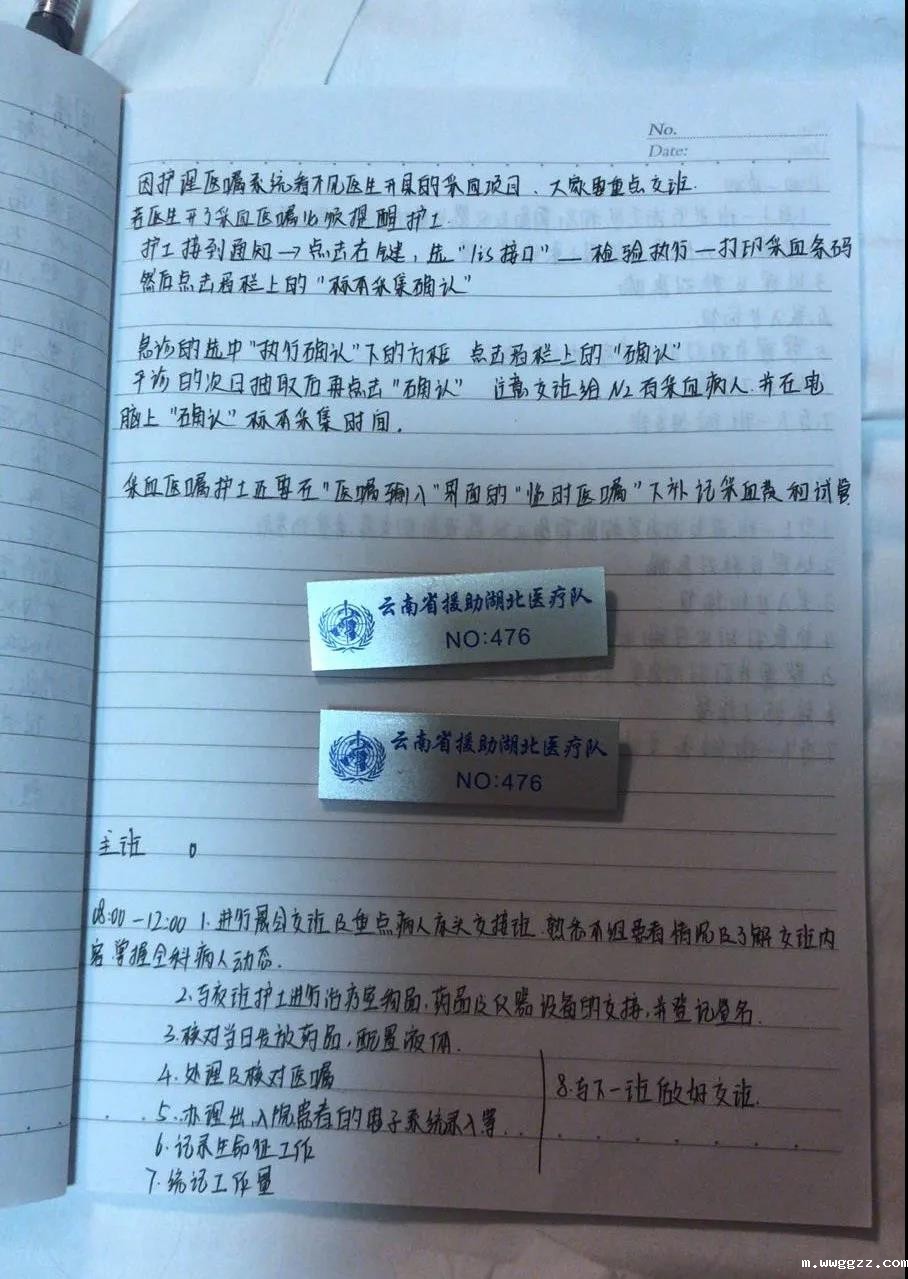 No.
Date:
因护理医嘱系统看不见医生开具的采血项目、大家要重点交班.
若医生开了采血医嘱必须提醒护士
护士接到通知→点击右键，选“lis接口”—检验执行—打印采血条码
然后点击菜栏上的“标本采集确认”
急诊的选中“执行确认”下的方框 点击菜栏上的“确认”
平诊的次日抽取后再点击“确认” 注意交班给N2有采血病人.并在电
脑上“确认”标本采集时间.
采血医嘱护士还要在“医嘱输入”界面的“临时医嘱”下补记采血费和试管
云南省援助湖北医疗队
NO:476
云南省援助湖北医疗队
NO:476
主班
08:00-12:00 1.进行晨会交班及重点病人床头交接班.熟悉本组患者情况及了解交班内
容.掌握全科病人动态.
2.与夜班护士进行治疗室物品.药品及仪器设备的交接,并登记签名.
3.核对当日发放药品,配置液体.
4.处理及核对医嘱
5.办理出.入院患者的电子系统录入等.
6.记录生命征工作
7.统记工作量
8.与下一班做好交班.
m.wwggzz.com